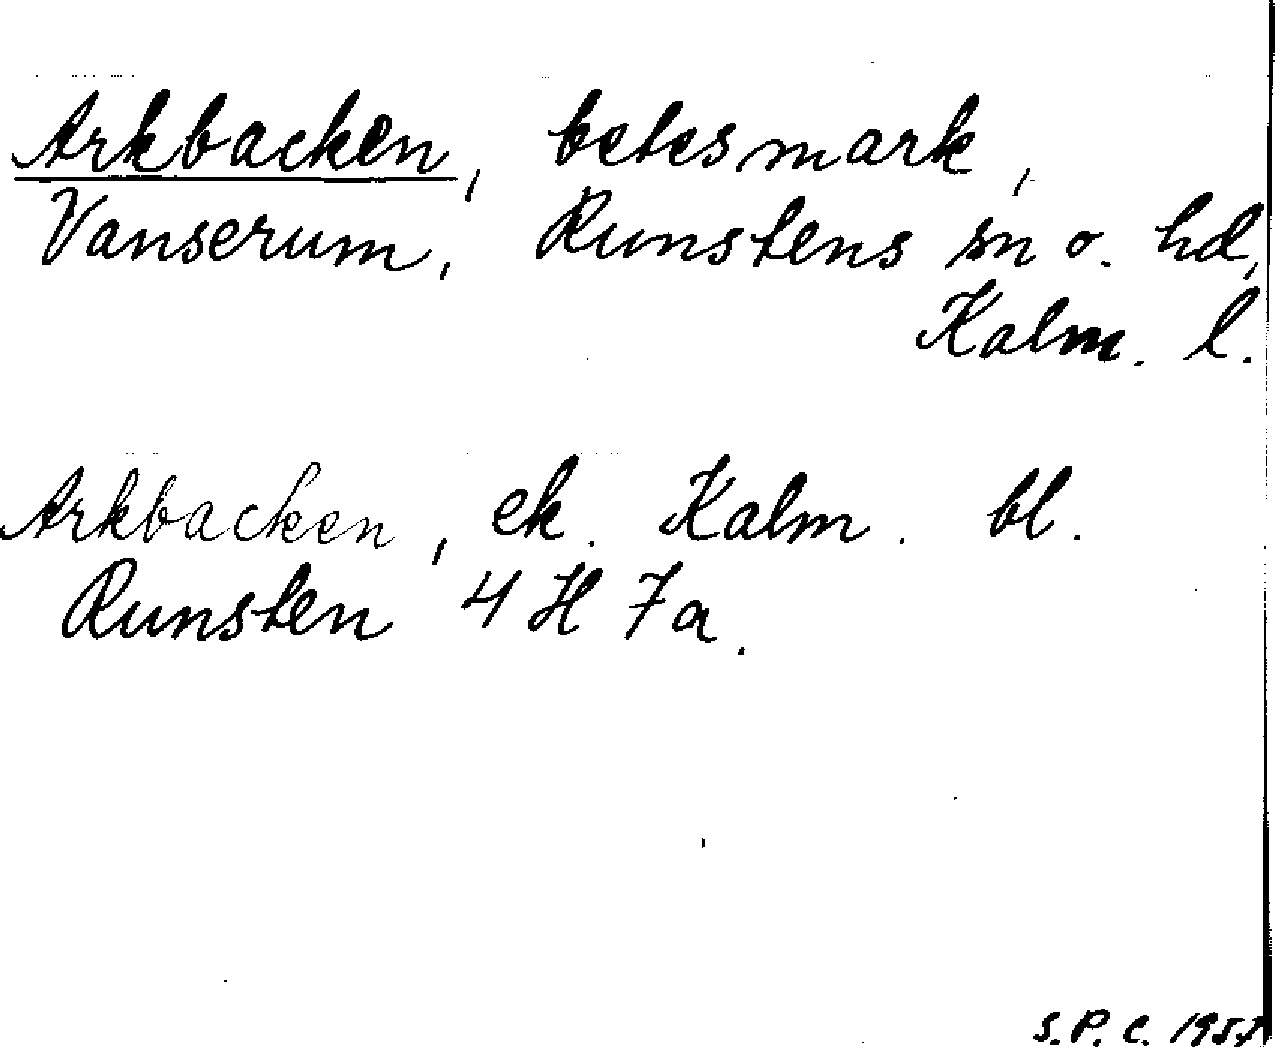 Arkbacken, betesmark,
Vanserum, Runstens sn o. hd,
Kalm. l.
Arkbacken, ek. Kalm. bl.
Runsten 4 H 7a.
S.P.C.